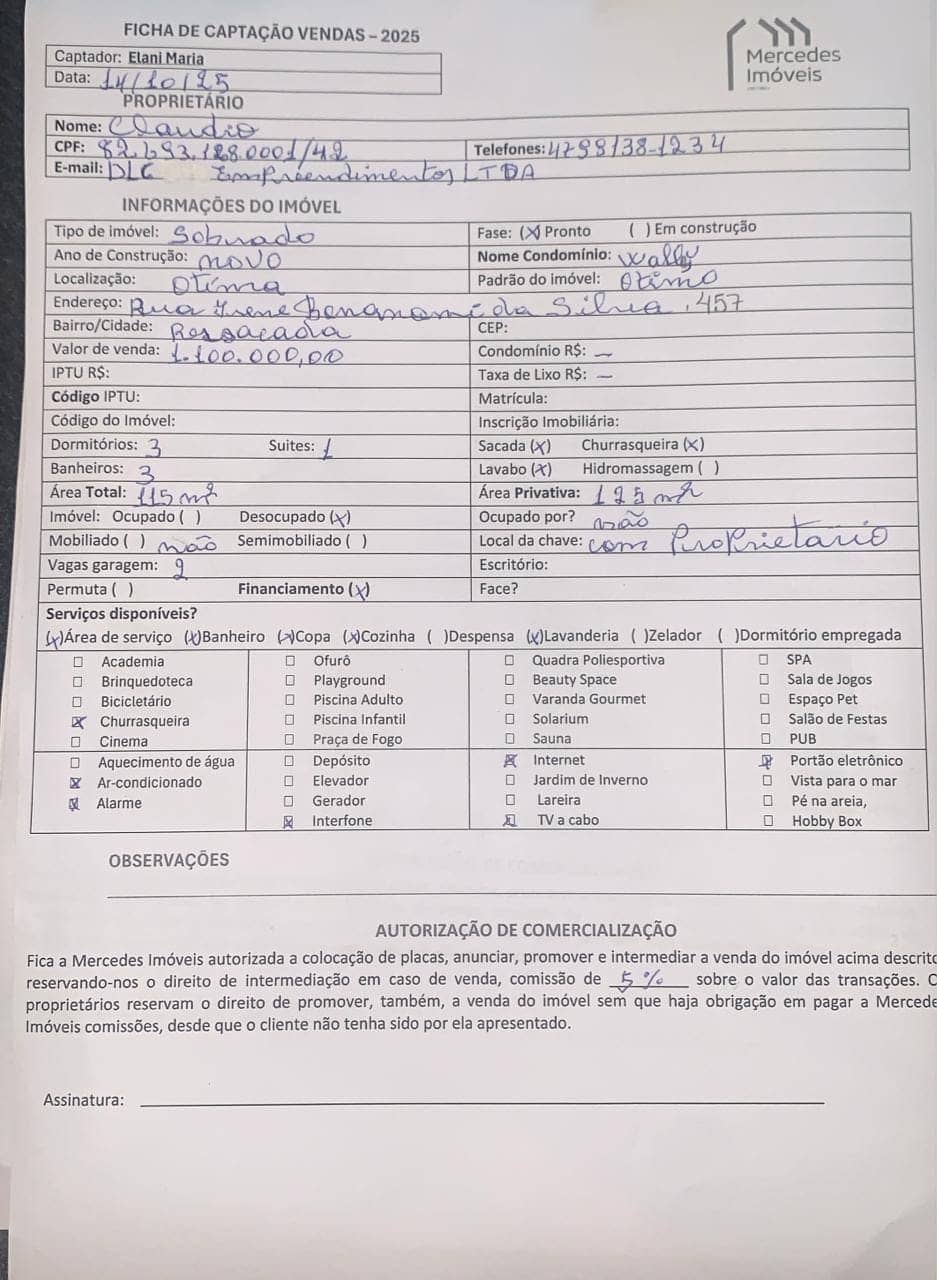 FICHA DE CAPTAÇÃO VENDAS – 2025
Mercedes
Imóveis
Captador: Elani Maria
Data: 14/10/25
PROPRIETÁRIO
Nome: Claudio
CPF: 82.693.128.0001/42 Telefones: 4798138-1234
E-mail: DLC Empreendimentos LTDA
INFORMAÇÕES DO IMÓVEL
Tipo de imóvel: Sobrado Fase: (X) Pronto ( ) Em construção
Ano de Construção: novo Nome Condomínio: Wally
Localização: Otima Padrão do imóvel: Otimo
Endereço: Rua Irene Bonanomi da Silva, 457
Bairro/Cidade: Ressacada CEP:
Valor de venda: 1.100.000,00 Condomínio R$: —
IPTU R$: Taxa de Lixo R$: —
Código IPTU: Matrícula:
Código do Imóvel: Inscrição Imobiliária:
Dormitórios: 3 Suites: 1 Sacada (X) Churrasqueira (X)
Banheiros: 3 Lavabo (X) Hidromassagem ( )
Área Total: 115 m² Área Privativa: 125 m²
Imóvel: Ocupado ( ) Desocupado (X) Ocupado por? não
Mobiliado ( ) não Semimobiliado ( ) Local da chave: com Proprietario
Vagas garagem: 2 Escritório:
Permuta ( ) Financiamento (X) Face?
Serviços disponíveis?
(X)Área de serviço (X)Banheiro (X)Copa (X)Cozinha ( )Despensa (X)Lavanderia ( )Zelador ( )Dormitório empregada
☐ Academia ☐ Ofurô ☐ Quadra Poliesportiva ☐ SPA
☐ Brinquedoteca ☐ Playground ☐ Beauty Space ☐ Sala de Jogos
☐ Bicicletário ☐ Piscina Adulto ☐ Varanda Gourmet ☐ Espaço Pet
☒ Churrasqueira ☐ Piscina Infantil ☐ Solarium ☐ Salão de Festas
☐ Cinema ☐ Praça de Fogo ☐ Sauna ☐ PUB
☐ Aquecimento de água ☐ Depósito ☒ Internet ☒ Portão eletrônico
☒ Ar-condicionado ☐ Elevador ☐ Jardim de Inverno ☐ Vista para o mar
☒ Alarme ☐ Gerador ☐ Lareira ☐ Pé na areia,
☒ Interfone ☒ TV a cabo ☐ Hobby Box
OBSERVAÇÕES
AUTORIZAÇÃO DE COMERCIALIZAÇÃO
Fica a Mercedes Imóveis autorizada a colocação de placas, anunciar, promover e intermediar a venda do imóvel acima descrito
reservando-nos o direito de intermediação em caso de venda, comissão de 5% sobre o valor das transações. O
proprietários reservam o direito de promover, também, a venda do imóvel sem que haja obrigação em pagar a Mercede
Imóveis comissões, desde que o cliente não tenha sido por ela apresentado.
Assinatura: